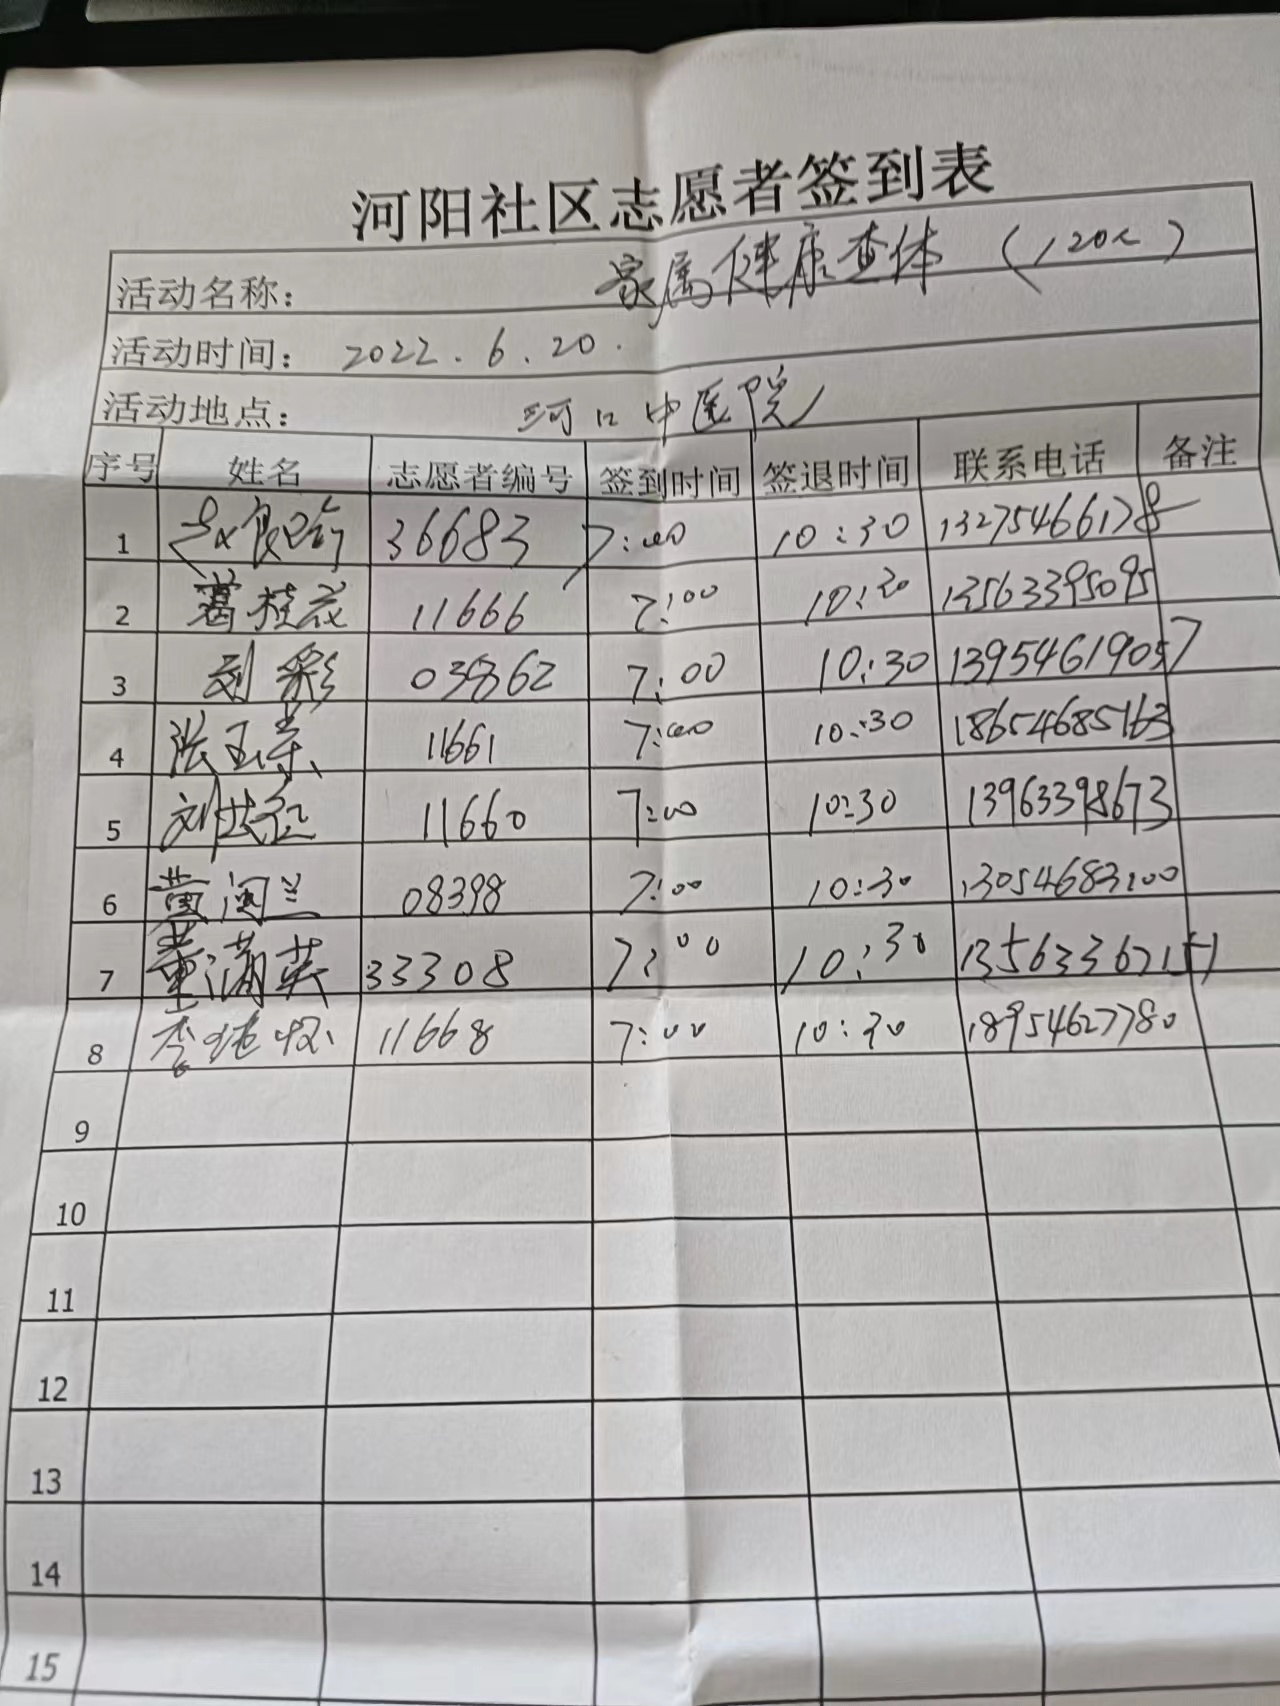 河阳社区志愿者签到表
活动名称： 家属健康查体 （120人）
活动时间： 2022.6.20.
活动地点： 河口中医院
序号 姓名 志愿者编号 签到时间 签退时间 联系电话 备注
1 36683 7:00 10:30 13275466178
2 葛桂花 11666 7:00 10:30 13563395095
3 刘彩 03862 7:00 10:30 13954619057
4 张玉 11661 7:00 10:30 18654685163
5 刘 11660 7:00 10:30 13963398673
6 黄闽兰 08398 7:00 10:30 13054683100
7 董满英 33308 7:00 10:30 13563362151
8 李 11668 7:00 10:30 18954627780
9
10
11
12
13
14
15